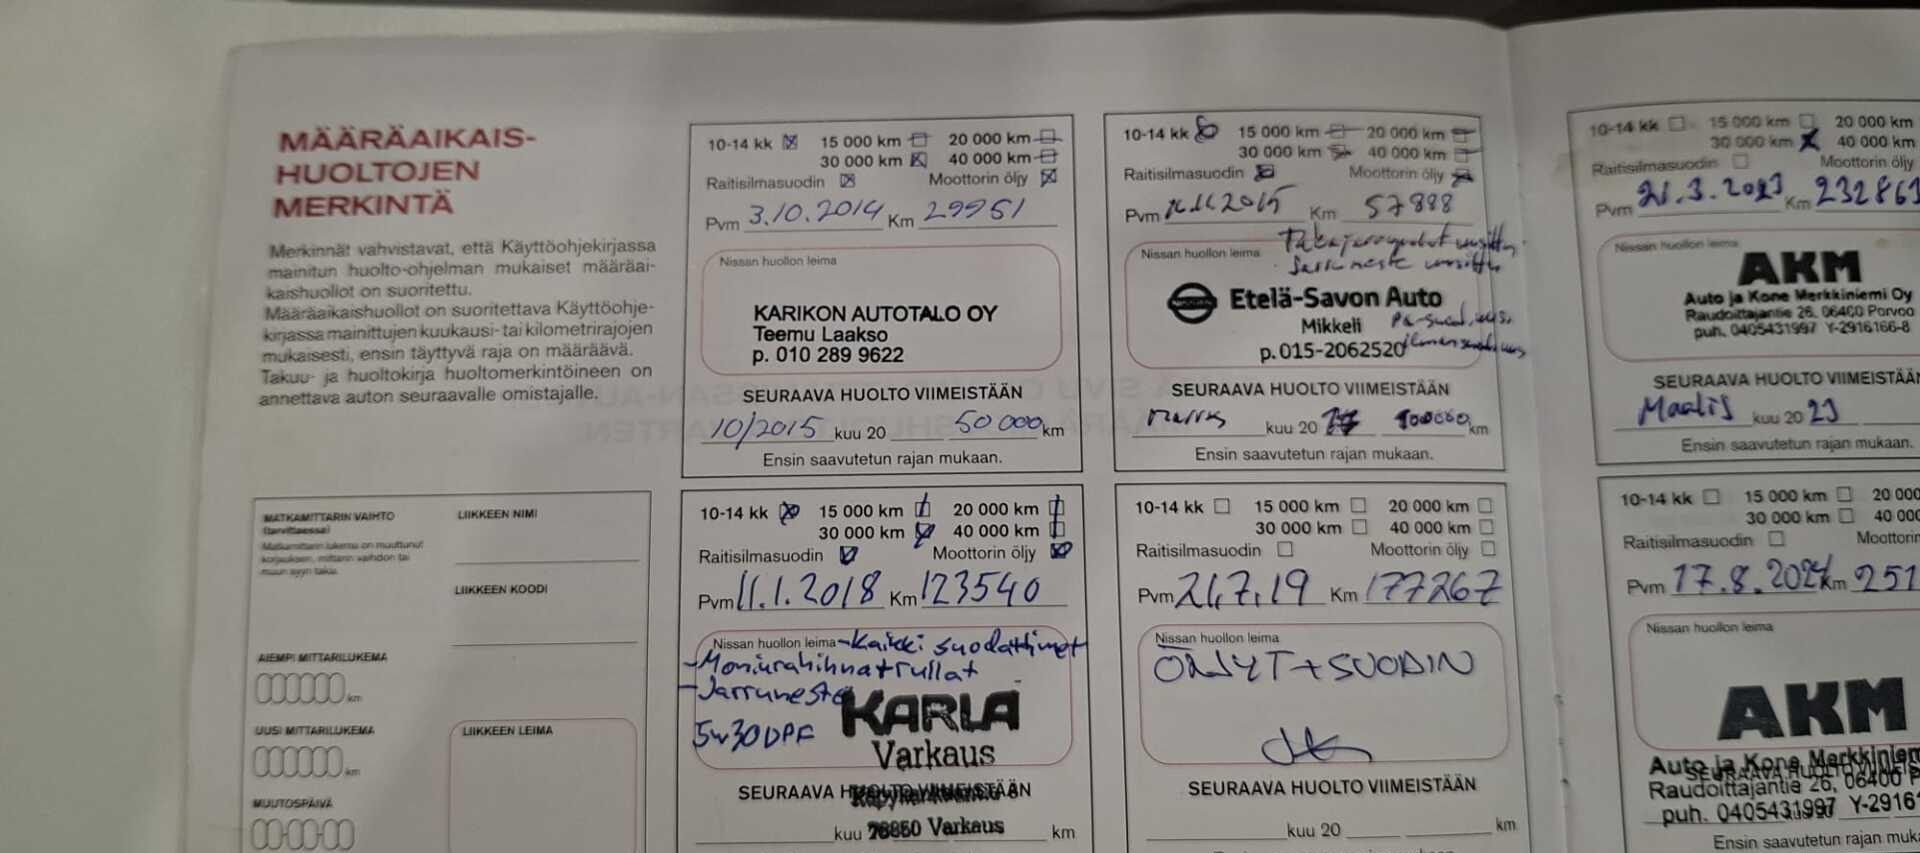 MÄÄRÄAIKAIS-
HUOLTOJEN
MERKINTÄ
Merkinnät vahvistavat, että Käyttöohjekirjassa
mainitun huolto-ohjelman mukaiset määräai-
kaishuollot on suoritettu.
Määräaikaishuollot on suoritettava Käyttöohje-
kirjassa mainittujen kuukausi- tai kilometrirajojen
mukaisesti, ensin täyttyvä raja on määräävä.
Takuu- ja huoltokirja huoltomerkintöineen on
annettava auton seuraavalle omistajalle.
10-14 kk 15 000 km 20 000 km
30 000 km 40 000 km
Raitisilmasuodin Moottorin öljy
Pvm 3.10.2014 Km 29951
Nissan huollon leima
KARIKON AUTOTALO OY
Teemu Laakso
p. 010 289 9622
SEURAAVA HUOLTO VIIMEISTÄÄN
10/2015 kuu 20 50 000 km
Ensin saavutetun rajan mukaan.
10-14 kk 15 000 km 20 000 km
30 000 km 40 000 km
Raitisilmasuodin Moottorin öljy
Pvm Km 57888
Nissan huollon leima
Etelä-Savon Auto
Mikkeli
p. 015-2062520
SEURAAVA HUOLTO VIIMEISTÄÄN
kuu 20 km
Ensin saavutetun rajan mukaan.
10-14 kk 15 000 km 20 000 km
30 000 km 40 000 km
Raitisilmasuodin Moottorin öljy
Pvm 21.3.2023 Km 232861
Nissan huollon leima
AKM
Auto ja Kone Merkkiniemi Oy
Raudoittajantie 26, 06400 Porvoo
puh. 0405431997 Y-2916166-8
SEURAAVA HUOLTO VIIMEISTÄÄN
Maalis kuu 20 23
Ensin saavutetun rajan mukaan.
MATKAMITTARIN VAIHTO
(tarvittaessa)
Matkamittarin lukema on muuttunut
korjauksen, mittarin vaihdon tai
muun syyn takia.
LIIKKEEN NIMI
LIIKKEEN KOODI
AIEMPI MITTARILUKEMA
km
UUSI MITTARILUKEMA
km
LIIKKEEN LEIMA
MUUTOSPÄIVÄ
10-14 kk 15 000 km 20 000 km
30 000 km 40 000 km
Raitisilmasuodin Moottorin öljy
Pvm 11.1.2018 Km 123540
Nissan huollon leima -Kaikki suodattimet
-Moniurahihna+rullat
-Jarruneste
5w30DPF
KARLA
Varkaus
SEURAAVA HUOLTO VIIMEISTÄÄN
kuu 78850 Varkaus km
10-14 kk 15 000 km 20 000 km
30 000 km 40 000 km
Raitisilmasuodin Moottorin öljy
Pvm 21.7.19 Km 177267
Nissan huollon leima
ÖLJYT+SUODIN
SEURAAVA HUOLTO VIIMEISTÄÄN
kuu 20 km
10-14 kk 15 000 km 20 000
30 000 km 40 000
Raitisilmasuodin Moottorin
Pvm 17.8.2024 Km 251
Nissan huollon leima
AKM
Auto ja Kone Merkkiniem
Raudoittajantie 26, 06400 P
puh. 0405431997 Y-2916
Ensin saavutetun rajan muka